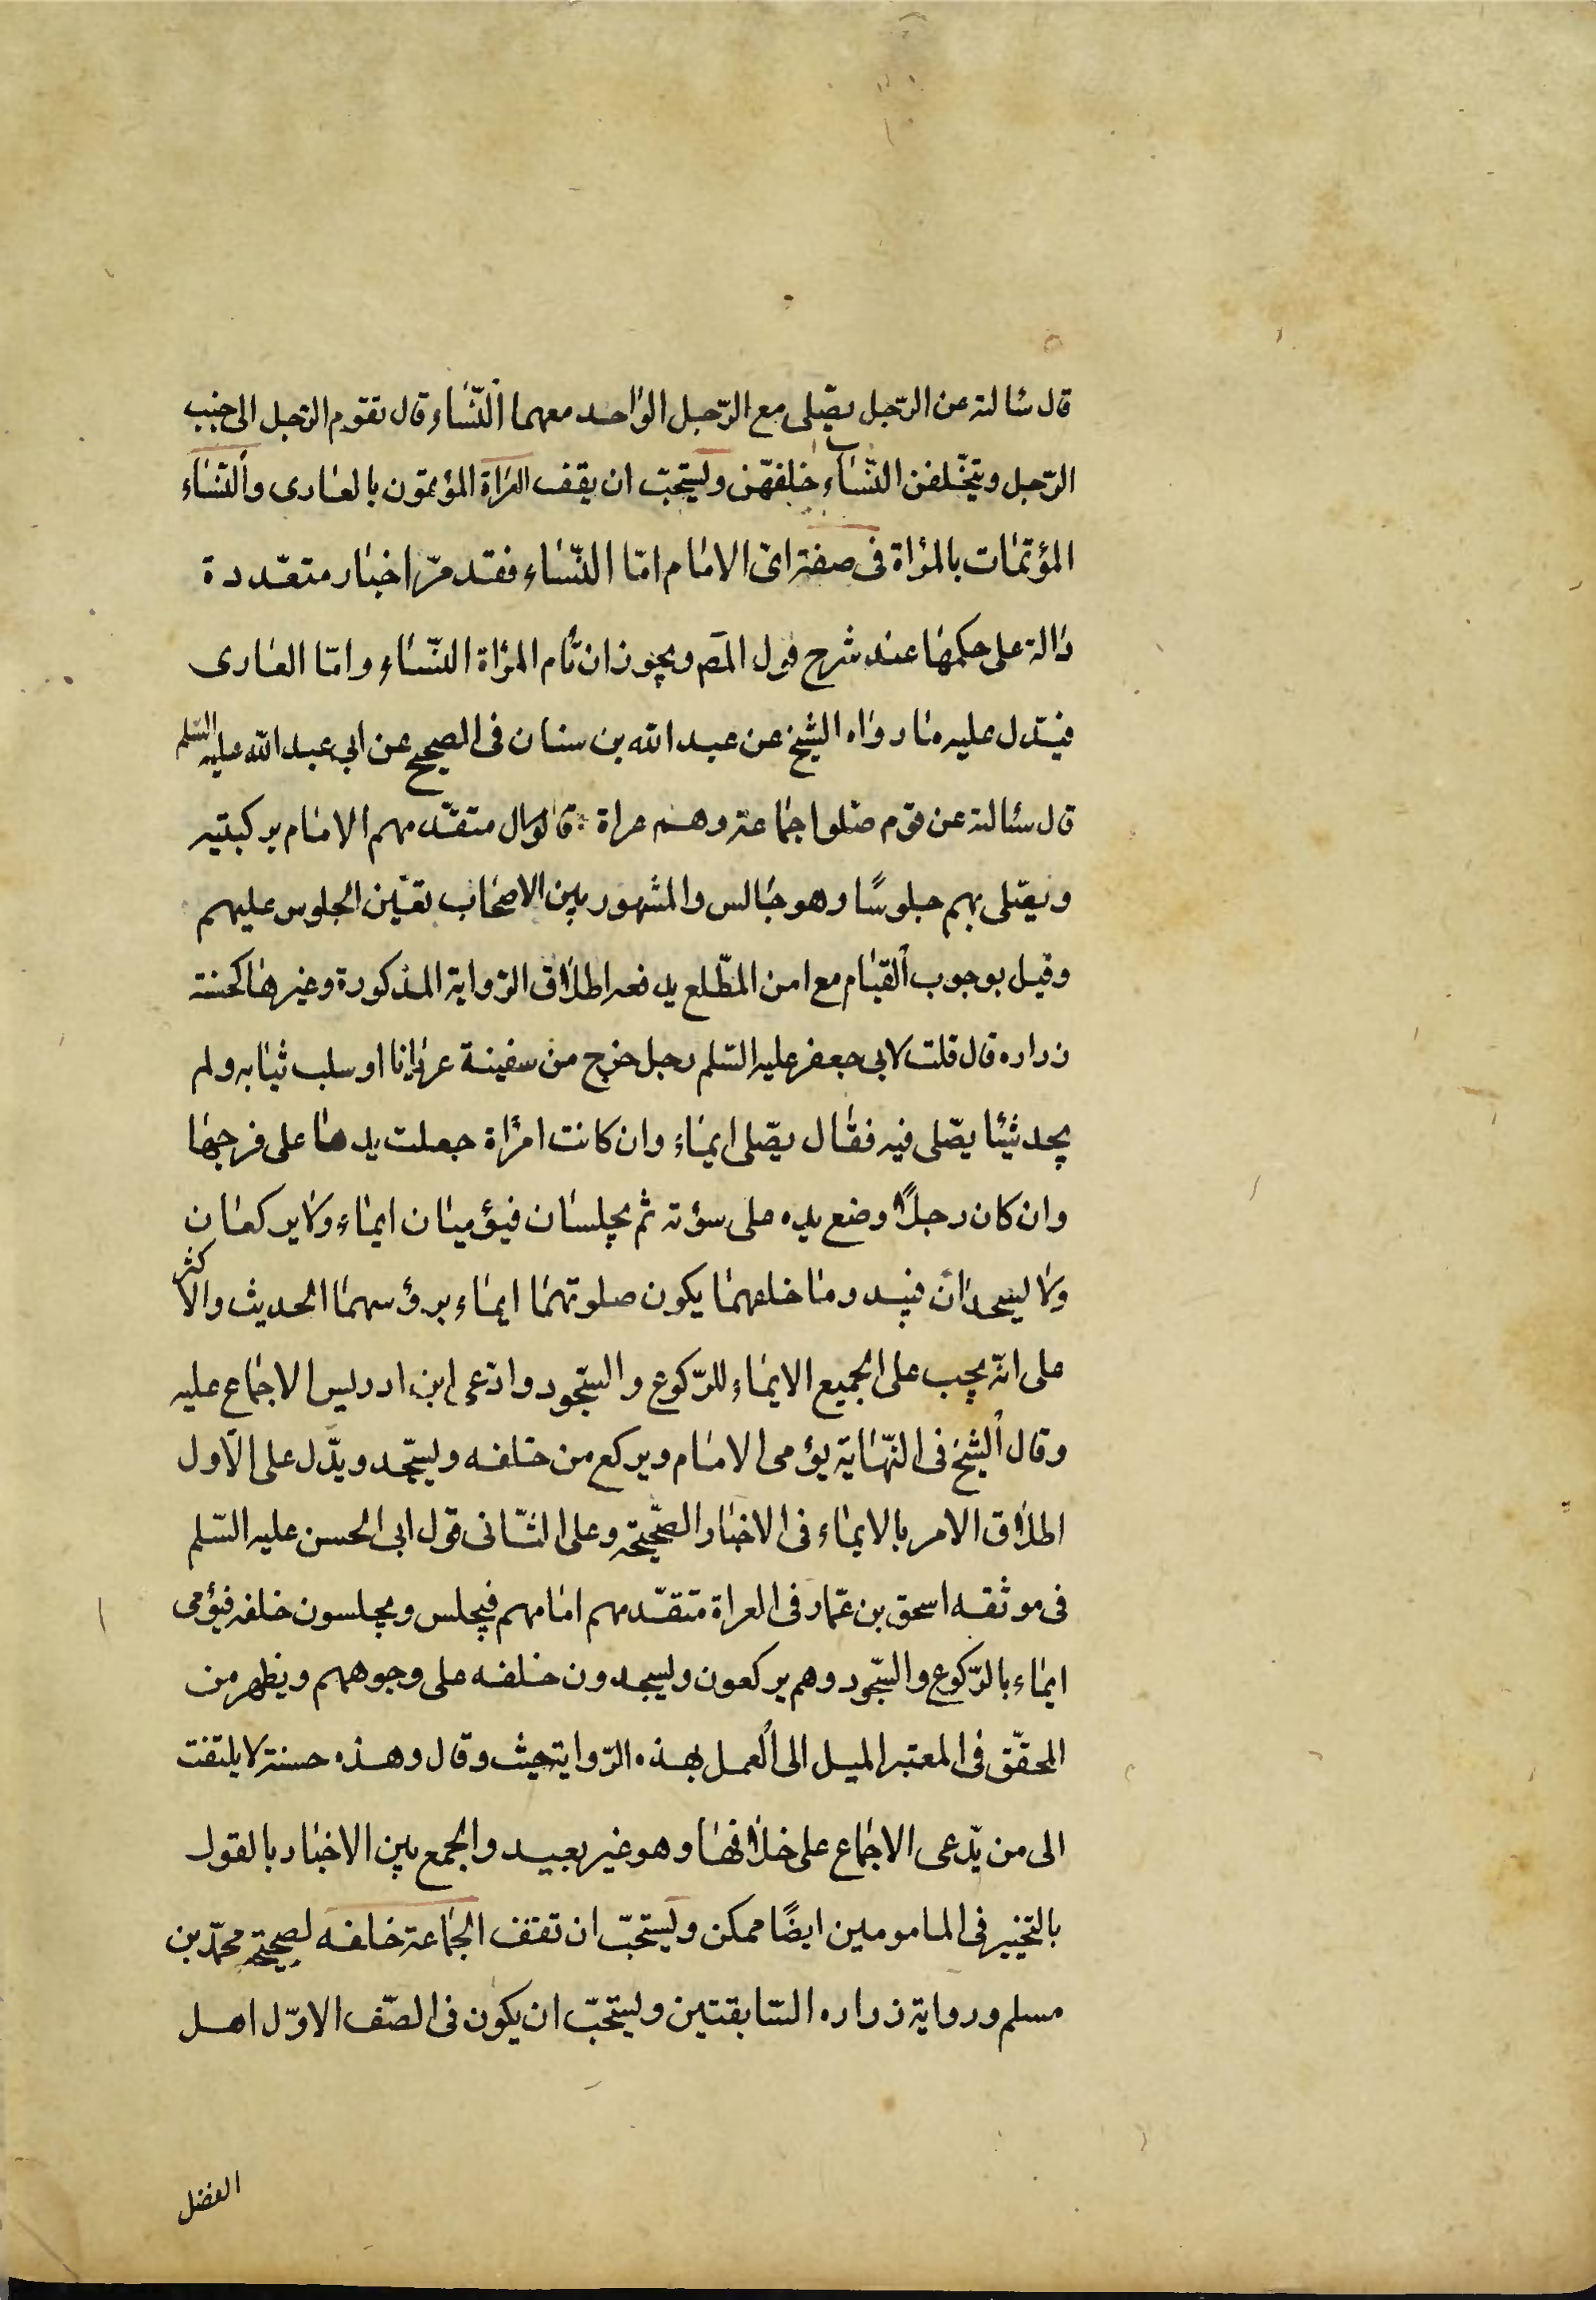 قال سئالته عن الرّجل يصّلى مع الرّجل الواحد معهما النّساء قال يقوم الرّجل الى جنب
الرّجل ويتخّلفن النّساء خلفهّن ويستحبّ ان يقف العراة المؤتمّون بالعارى والنّساء
المؤتمّات بالمرأة فى صفته اىّ الامام امّا النّساء فقد مرّ اخبار متعدّدة
دالة على حكمها عند شرح قول المصَ ويجوز ان تأم المرأة النّساء وامّا العارى
فيدّل عليه ما رواه الشيخ عن عبد الله بن سنان فى الصحيح عن ابى عبد الله عليه السّلم
قال سئالته عن قوم صّلوا جماعة وهم عراة قال يتقدّمهم الامام بركبتيه
ويصّلى بهم جلوسًا وهو جالس والمشهور بين الاصحاب تعيّن الجلوس عليهم
وقيل بوجوب القيام مع امن المطّلع يدفعه اطلاق الرّواية المذكورة وغيرها كحسنة
زراره قال قلت لابى جعفر عليه السّلم رجل خرج من سفينة عريانا او سلب ثيابه ولم
يجد شيئا يصّلى فيه فقال يصّلى ايماء وان كانت امرأة جعلت يدها على فرجها
وان كان رجلًا وضع يده على سؤته ثم يجلسان فيؤميان ايماء ولا يركعان
ولا يسجدان فيبدو ما خلفهما يكون صلوتهما ايماء برؤسهما الحديث والاكثر
على انّه يجب على الجميع الايماء للرّكوع والسّجود وادّعى ابن ادريس الاجماع عليه
وقال الشيخ فى النّهاية يؤمى الامام ويركع من خلفه ويسجّد ويدّل على الاول
اطلاق الامر بالايماء فى الاخبار الصّحيحة وعلى الثّانى قول ابى الحسن عليه السّلم
فى موثقه اسحق بن عمّار فى العراة متقدّمهم امامهم فيجلس ويجلسون خلفه فيؤمى
ايماء بالرّكوع والسّجود وهم يركعون ويسجدون خلفه على وجوههم ويظهر من
المحقّق فى المعتبر الميل الى العمل بهذه الرّواية حيث وقال وهذه حسنة لا يلتفت
الى من يّدعى الاجماع على خلافها وهو غير بعيد والجمع بين الاخبار بالقول
بالتخيير فى المامومين ايضًا ممكن ويستحبّ ان تقف الجماعة خلفه لصحيحة محمّد بن
مسلم ورواية زراره السّابقتين ويستحبّ ان يكون فى الصّف الاوّل اهل
الفضل